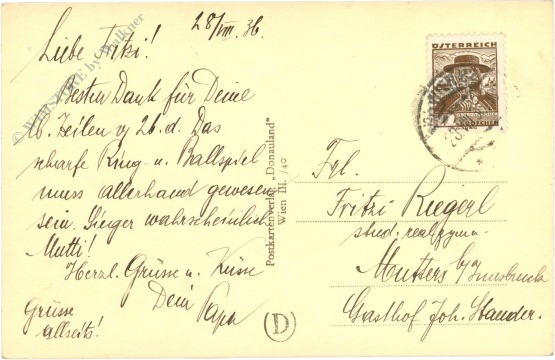 28/VIII. 36.
Liebe Fritzi!
Besten Dank für Deine
lb. Zeilen v. 26. d. Das
scharfe Ring- u. Ballspiel
muss allerhand gewesen
sein. Sieger wahrscheinlich
Mutti!
Herzl. Grüsse u. Küsse
Dein Papa
Grüsse
allseits!
Postkartenverlag „Donauland"
Wien III. /40
D
ÖSTERREICH
Frl.
Fritzi Riegerl
stud. realgymn.
Mutters b/Innsbruck
Gasthof Joh. Stauder.